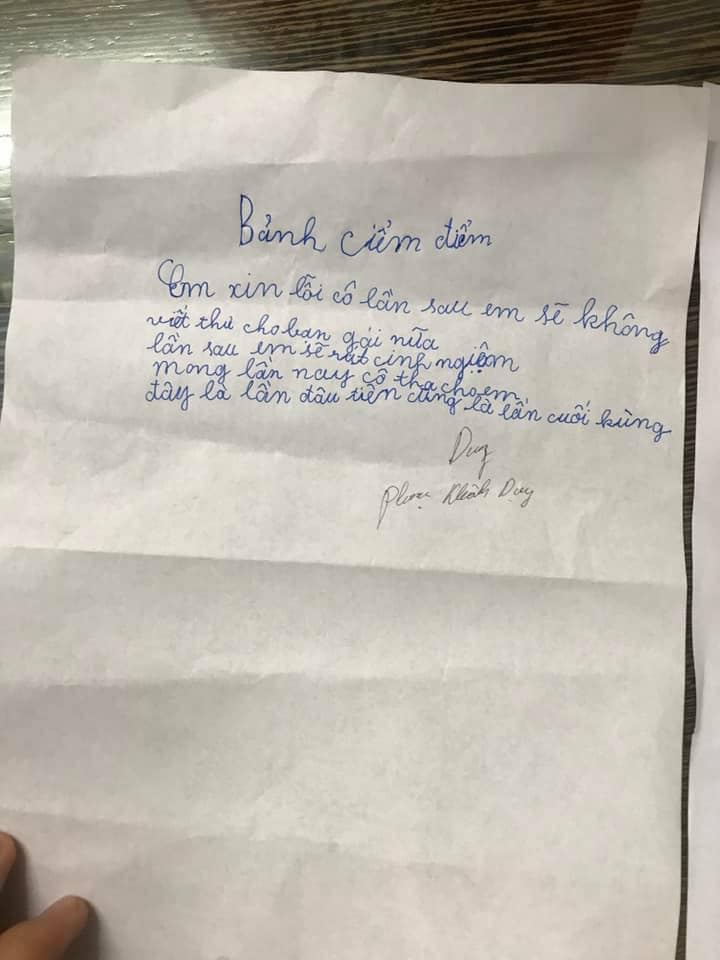 Bảnh ciểm điểm
Em xin lỗi cô lần sau em sẽ không
viết thư cho bạn gái nữa
lần sau em sẽ rút cinh ngiệm
mong lần nay cô tha cho em
đây là lần đâu tiên cũng là lần cuối kùng
Duy
Phạm Khánh Duy